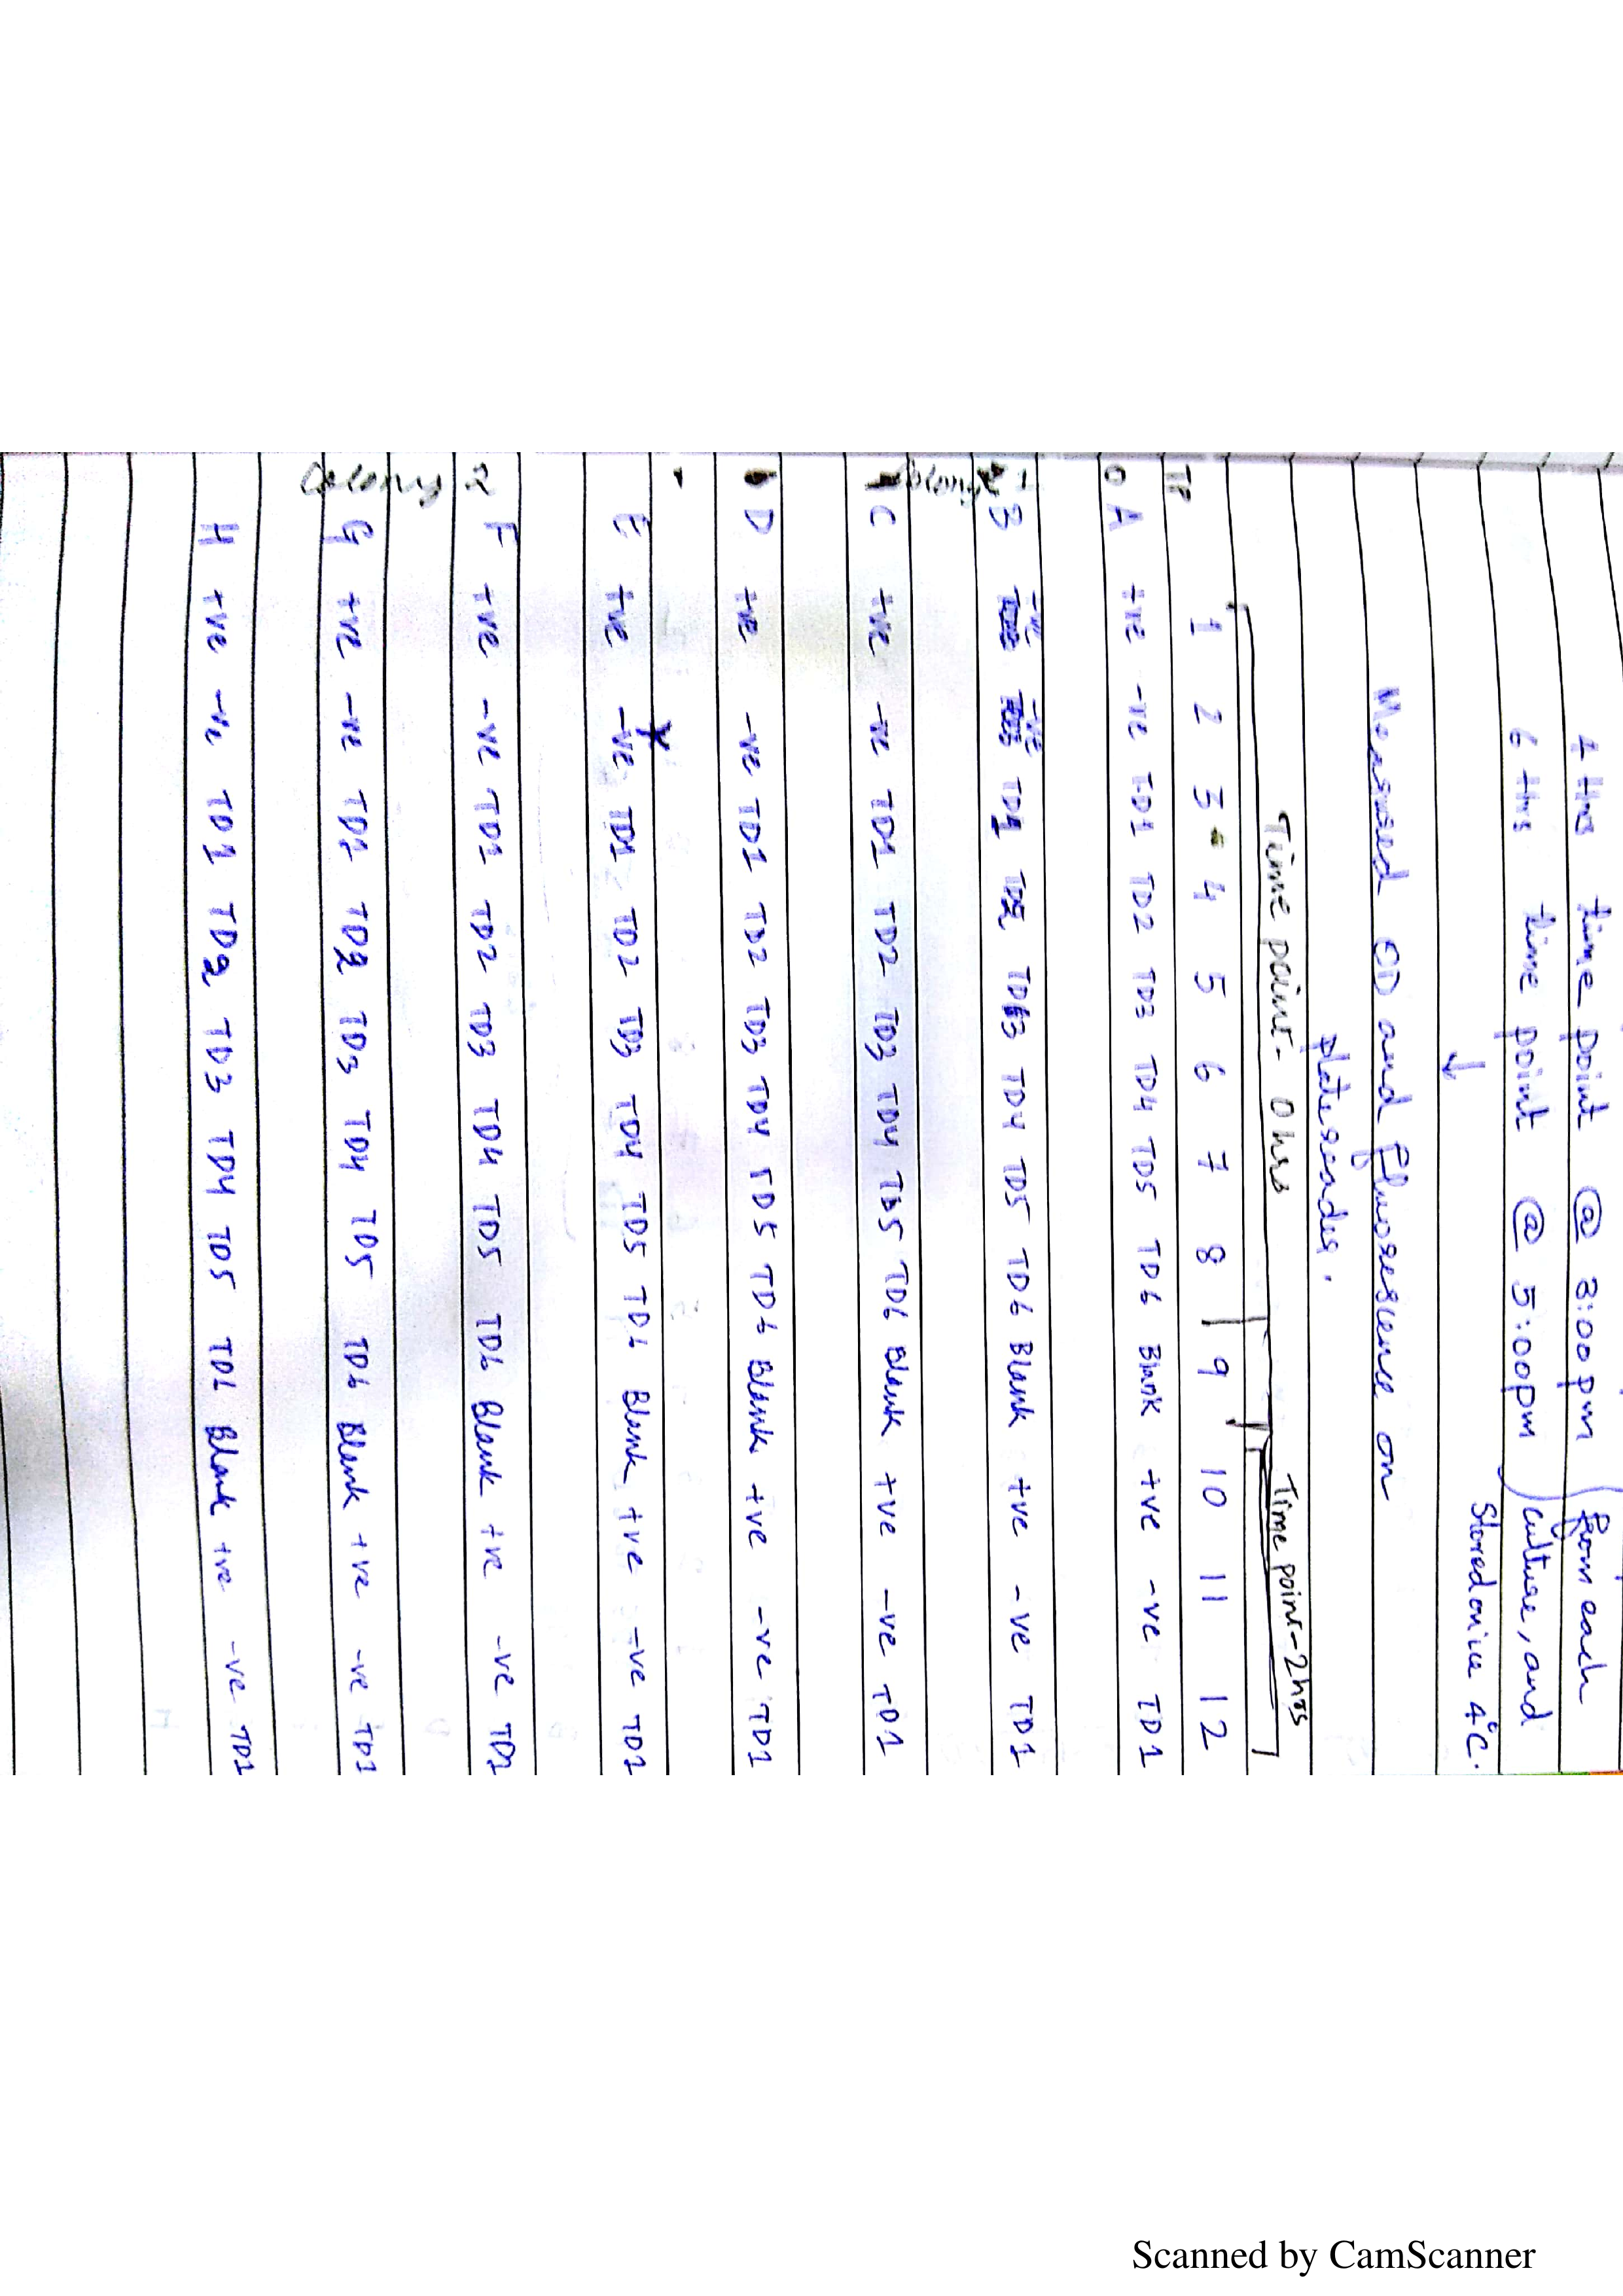 4 Hrs time point @ 3:00pm from each
6 Hrs time point @ 5:00pm culture, and
↓ Stored on ice 4°C.
Measured OD and fluorescence on
plate reader.
Time point - 0 hrs Time point - 2 hrs
TP 1 2 3 4 5 6 7 8 9 10 11 12
0 A +ve -ve TD1 TD2 TD3 TD4 TD5 TD6 Blank +ve -ve TD1
B +ve -ve TD1 TD2 TD3 TD4 TD5 TD6 Blank +ve -ve TD1
Colony 1
C +ve -ve TD1 TD2 TD3 TD4 TD5 TD6 Blank +ve -ve TD1
D +ve -ve TD1 TD2 TD3 TD4 TD5 TD6 Blank +ve -ve TD1
E +ve -ve TD1 TD2 TD3 TD4 TD5 TD6 Blank +ve -ve TD1
F +ve -ve TD1 TD2 TD3 TD4 TD5 TD6 Blank +ve -ve TD1
Colony 2
G +ve -ve TD1 TD2 TD3 TD4 TD5 TD6 Blank +ve -ve TD1
H +ve -ve TD1 TD2 TD3 TD4 TD5 TD6 Blank +ve -ve TD1
Scanned by CamScanner